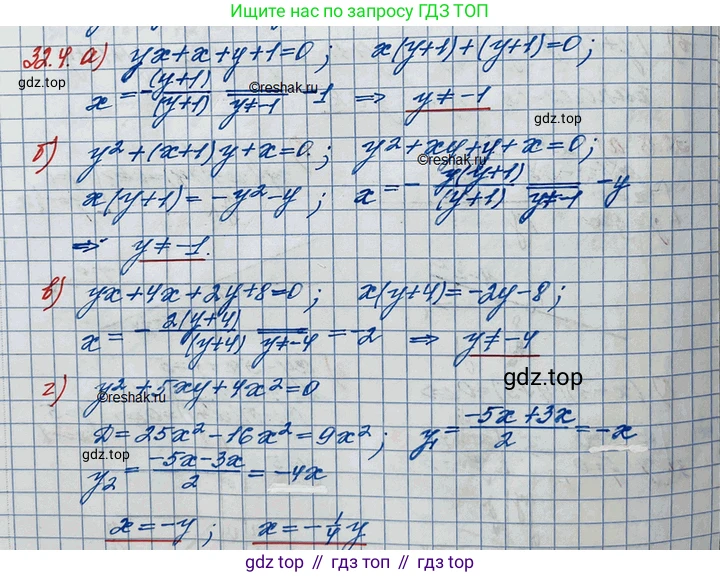 Ищите ещё по запросу ГДЗ ТОП
32.4. а) yx+x+y+1=0; x(y+1)+(y+1)=0;
gdz.top
x = -(y+1)/(y+1) = y≠-1 -1 ⇒ y≠-1
©reshak.ru
б) y²+(x+1)y+x=0; y²+xy+y+x=0;
©reshak.ru
x(y+1)=-y²-y; x = -y(y+1)/(y+1) = y≠-1 -y
gdz.top
⇒ y≠-1.
в) yx+4x+2y+8=0; x(y+4)=-2y-8;
x = -2(y+4)/(y+4) = y≠-4 =-2 ⇒ y≠-4
gdz.top
г) y²+5xy+4x²=0
©reshak.ru
D=25x²-16x²=9x²; y₁=(-5x+3x)/2=-x
gdz.top
y₂=(-5x-3x)/2=-4x
x=-y; x=-1/4 y
gdz.top // гдз топ // gdz.top